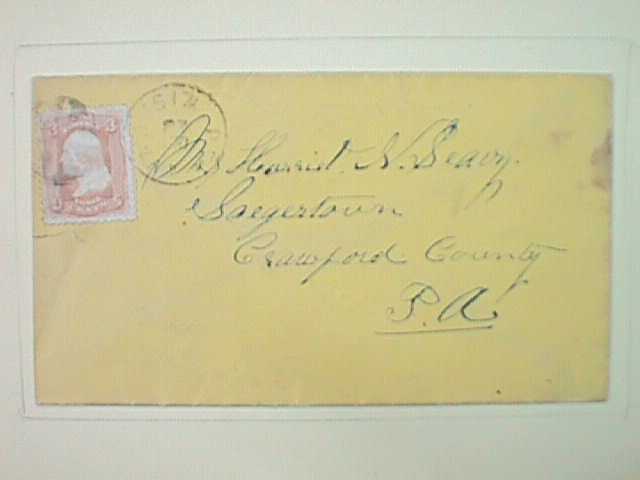 3 3
Mrs Harriet. N. Seavy.
Saegertown
Crawford County
P.A.